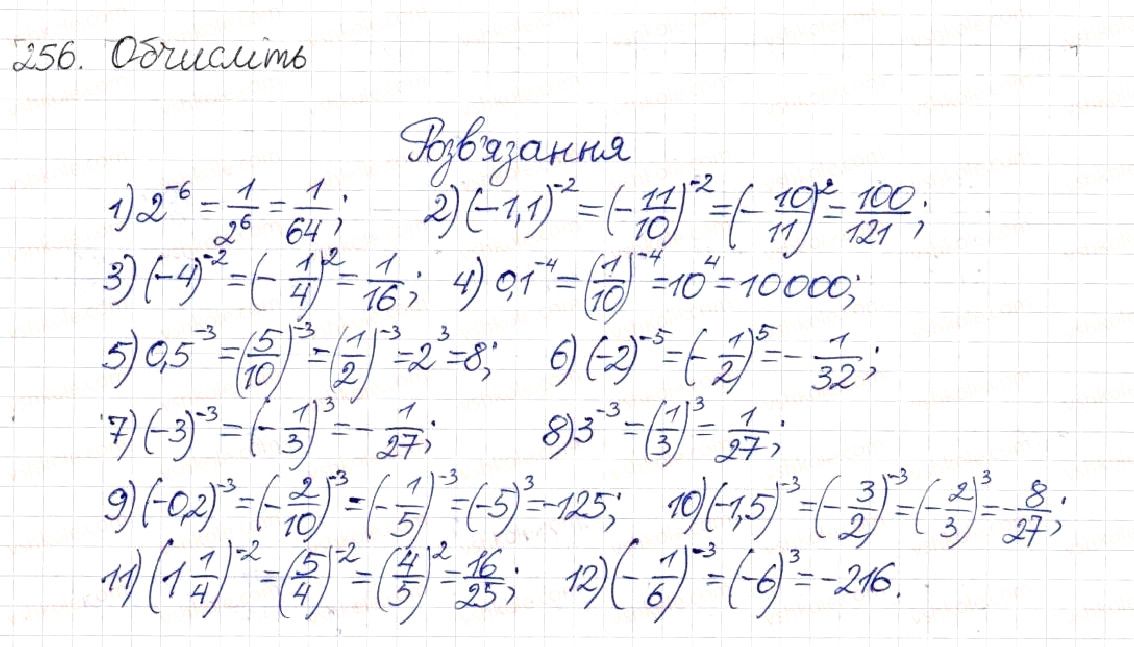 256. Обчисліть
Розв'язання
1) 2^{-6} = \frac{1}{2^6} = \frac{1}{64}; 2) (-1,1)^{-2} = (-\frac{11}{10})^{-2} = (-\frac{10}{11})^2 = \frac{100}{121};
3) (-4)^{-2} = (-\frac{1}{4})^2 = \frac{1}{16}; 4) 0,1^{-4} = (\frac{1}{10})^{-4} = 10^4 = 10000;
5) 0,5^{-3} = (\frac{5}{10})^{-3} = (\frac{1}{2})^{-3} = 2^3 = 8; 6) (-2)^{-5} = (-\frac{1}{2})^5 = -\frac{1}{32};
7) (-3)^{-3} = (-\frac{1}{3})^3 = -\frac{1}{27}; 8) 3^{-3} = (\frac{1}{3})^3 = \frac{1}{27};
9) (-0,2)^{-3} = (-\frac{2}{10})^{-3} = (-\frac{1}{5})^{-3} = (-5)^3 = -125; 10) (-1,5)^{-3} = (-\frac{3}{2})^{-3} = (-\frac{2}{3})^3 = -\frac{8}{27};
11) (1\frac{1}{4})^{-2} = (\frac{5}{4})^{-2} = (\frac{4}{5})^2 = \frac{16}{25}; 12) (-\frac{1}{6})^{-3} = (-6)^3 = -216.